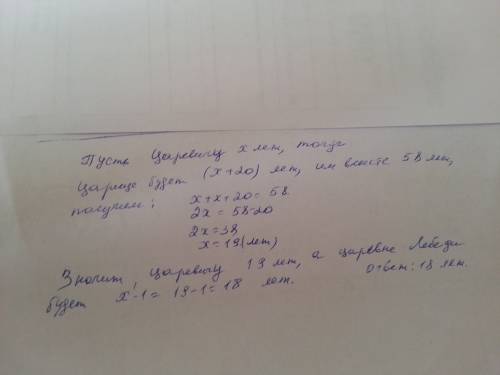 Пусть Царевичу x лет, тогда
Царице будет (x+20) лет, им вместе 58 лет,
получим: x+x+20=58
2x = 58-20
2x=38
x=19(лет)
Значит, царевичу 19 лет, а царевне Лебеди
будет x-1= 19-1=18 лет. Ответ: 18 лет.